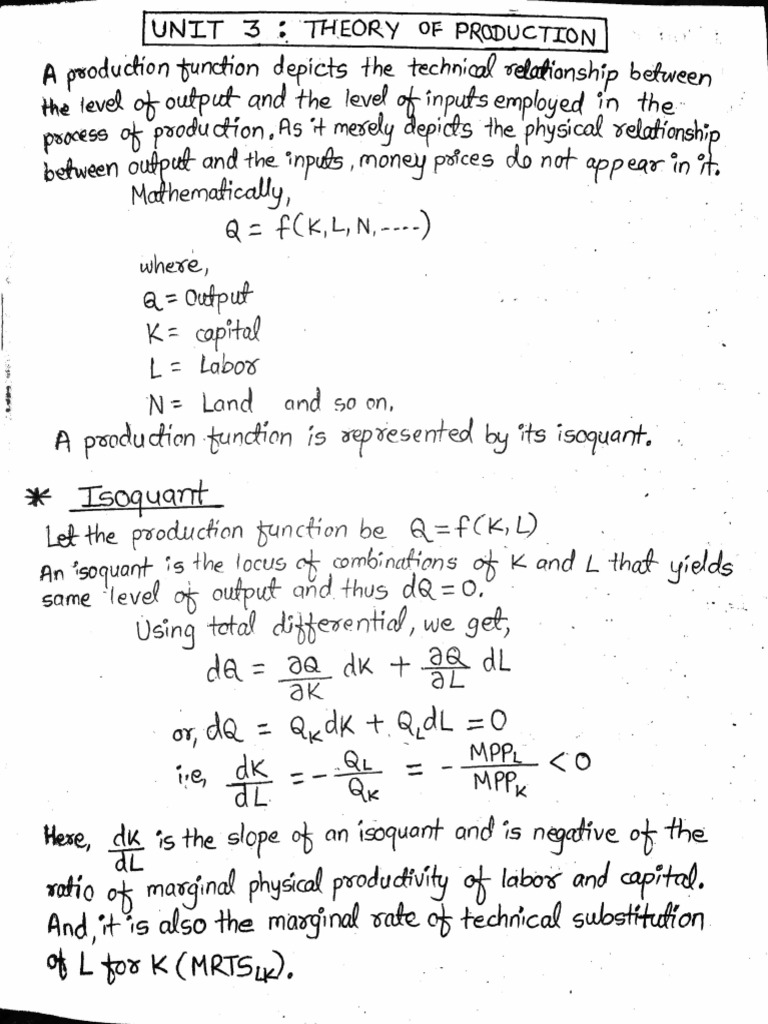 UNIT 3 : THEORY OF PRODUCTION
A production function depicts the technical relationship between
the level of output and the level of inputs employed in the
process of production. As it merely depicts the physical relationship
between output and the inputs, money prices do not appear in it.
Mathematically,
Q = f(K, L, N, ----)
where,
Q = Output
K = capital
L = Labor
N = Land and so on,
A production function is represented by its isoquant.
* Isoquant
Let the production function be Q = f(K, L)
An isoquant is the locus of combinations of K and L that yields
same level of output and thus dQ = 0.
Using total differential, we get,
dQ = ∂Q/∂K dK + ∂Q/∂L dL
or, dQ = Q_K dK + Q_L dL = 0
i.e, dK/dL = - Q_L/Q_K = - MPP_L/MPP_K < 0
Here, dK/dL is the slope of an isoquant and is negative of the
ratio of marginal physical productivity of labor and capital.
And, it is also the marginal rate of technical substitution
of L for K (MRTS_LK).